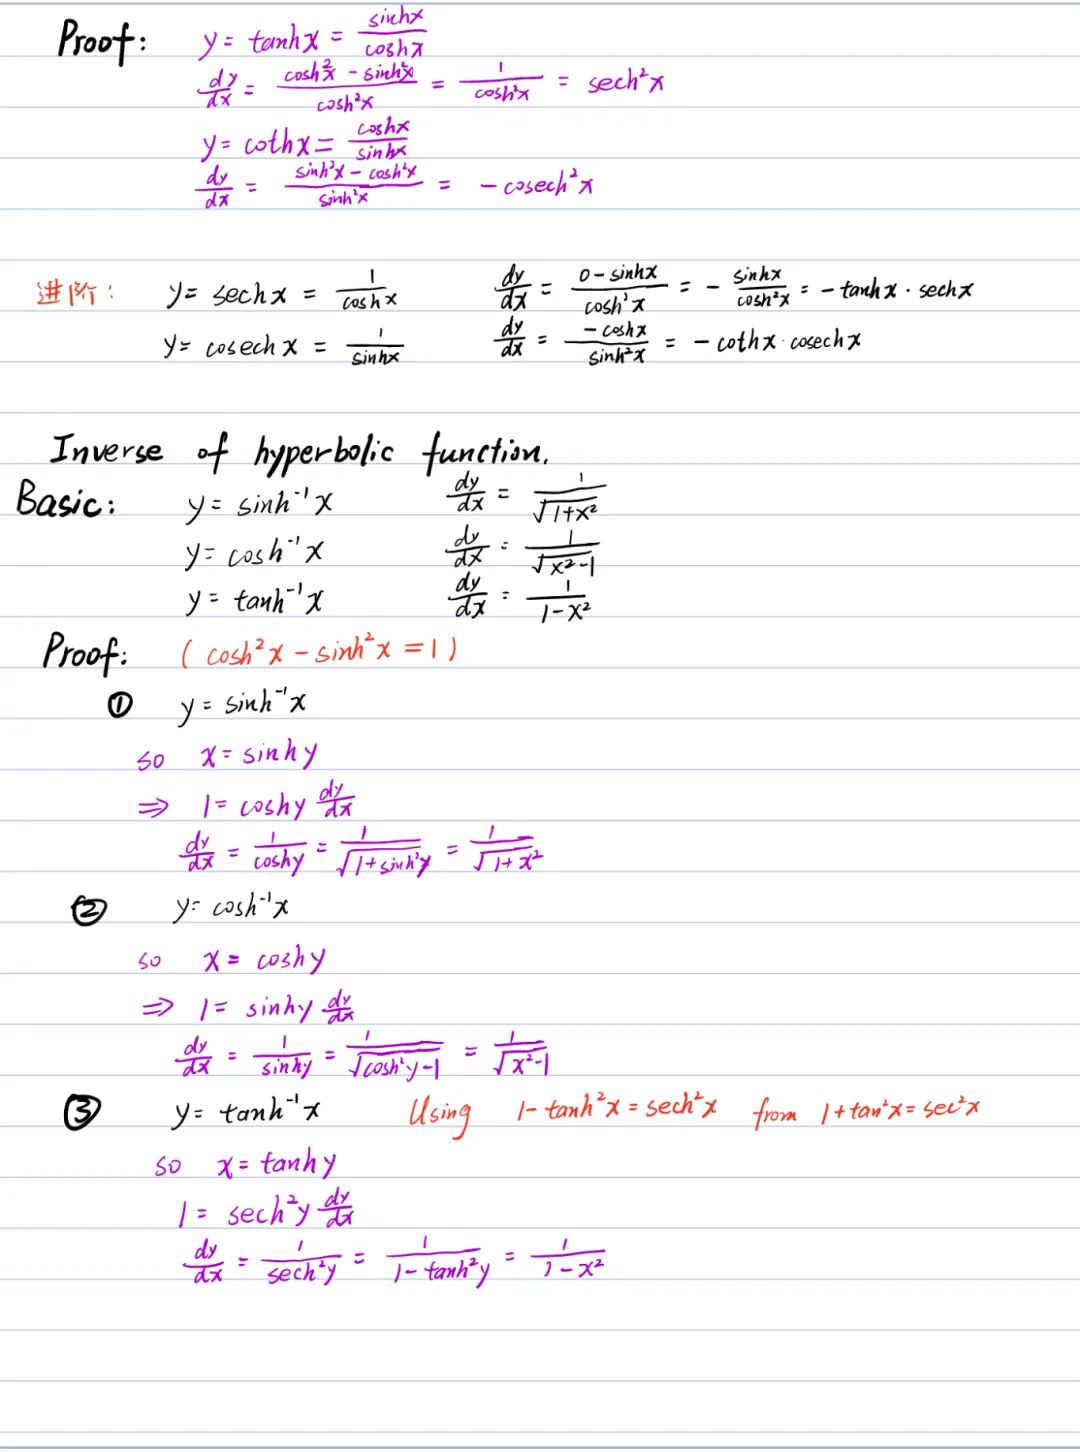 Proof: y = tanhx = sinhx/coshx
dy/dx = (cosh²x - sinh²x)/cosh²x = 1/cosh²x = sech²x
y = cothx = coshx/sinhx
dy/dx = (sinh²x - cosh²x)/sinh²x = - cosech²x
进阶: y = sechx = 1/coshx dy/dx = (0 - sinhx)/cosh²x = - sinhx/cosh²x = - tanhx · sechx
y = cosechx = 1/sinhx dy/dx = -coshx/sinh²x = - cothx · cosechx
Inverse of hyperbolic function.
Basic: y = sinh⁻¹x dy/dx = 1/√(1+x²)
y = cosh⁻¹x dy/dx = 1/√(x²-1)
y = tanh⁻¹x dy/dx = 1/(1-x²)
Proof: (cosh²x - sinh²x = 1)
① y = sinh⁻¹x
so x = sinhy
⇒ 1 = coshy dy/dx
dy/dx = 1/coshy = 1/√(1+sinh²y) = 1/√(1+x²)
② y = cosh⁻¹x
so x = coshy
⇒ 1 = sinhy dy/dx
dy/dx = 1/sinhy = 1/√(cosh²y-1) = 1/√(x²-1)
③ y = tanh⁻¹x Using 1 - tanh²x = sech²x from 1 + tan²x = sec²x
so x = tanhy
1 = sech²y dy/dx
dy/dx = 1/sech²y = 1/(1 - tanh²y) = 1/(1 - x²)